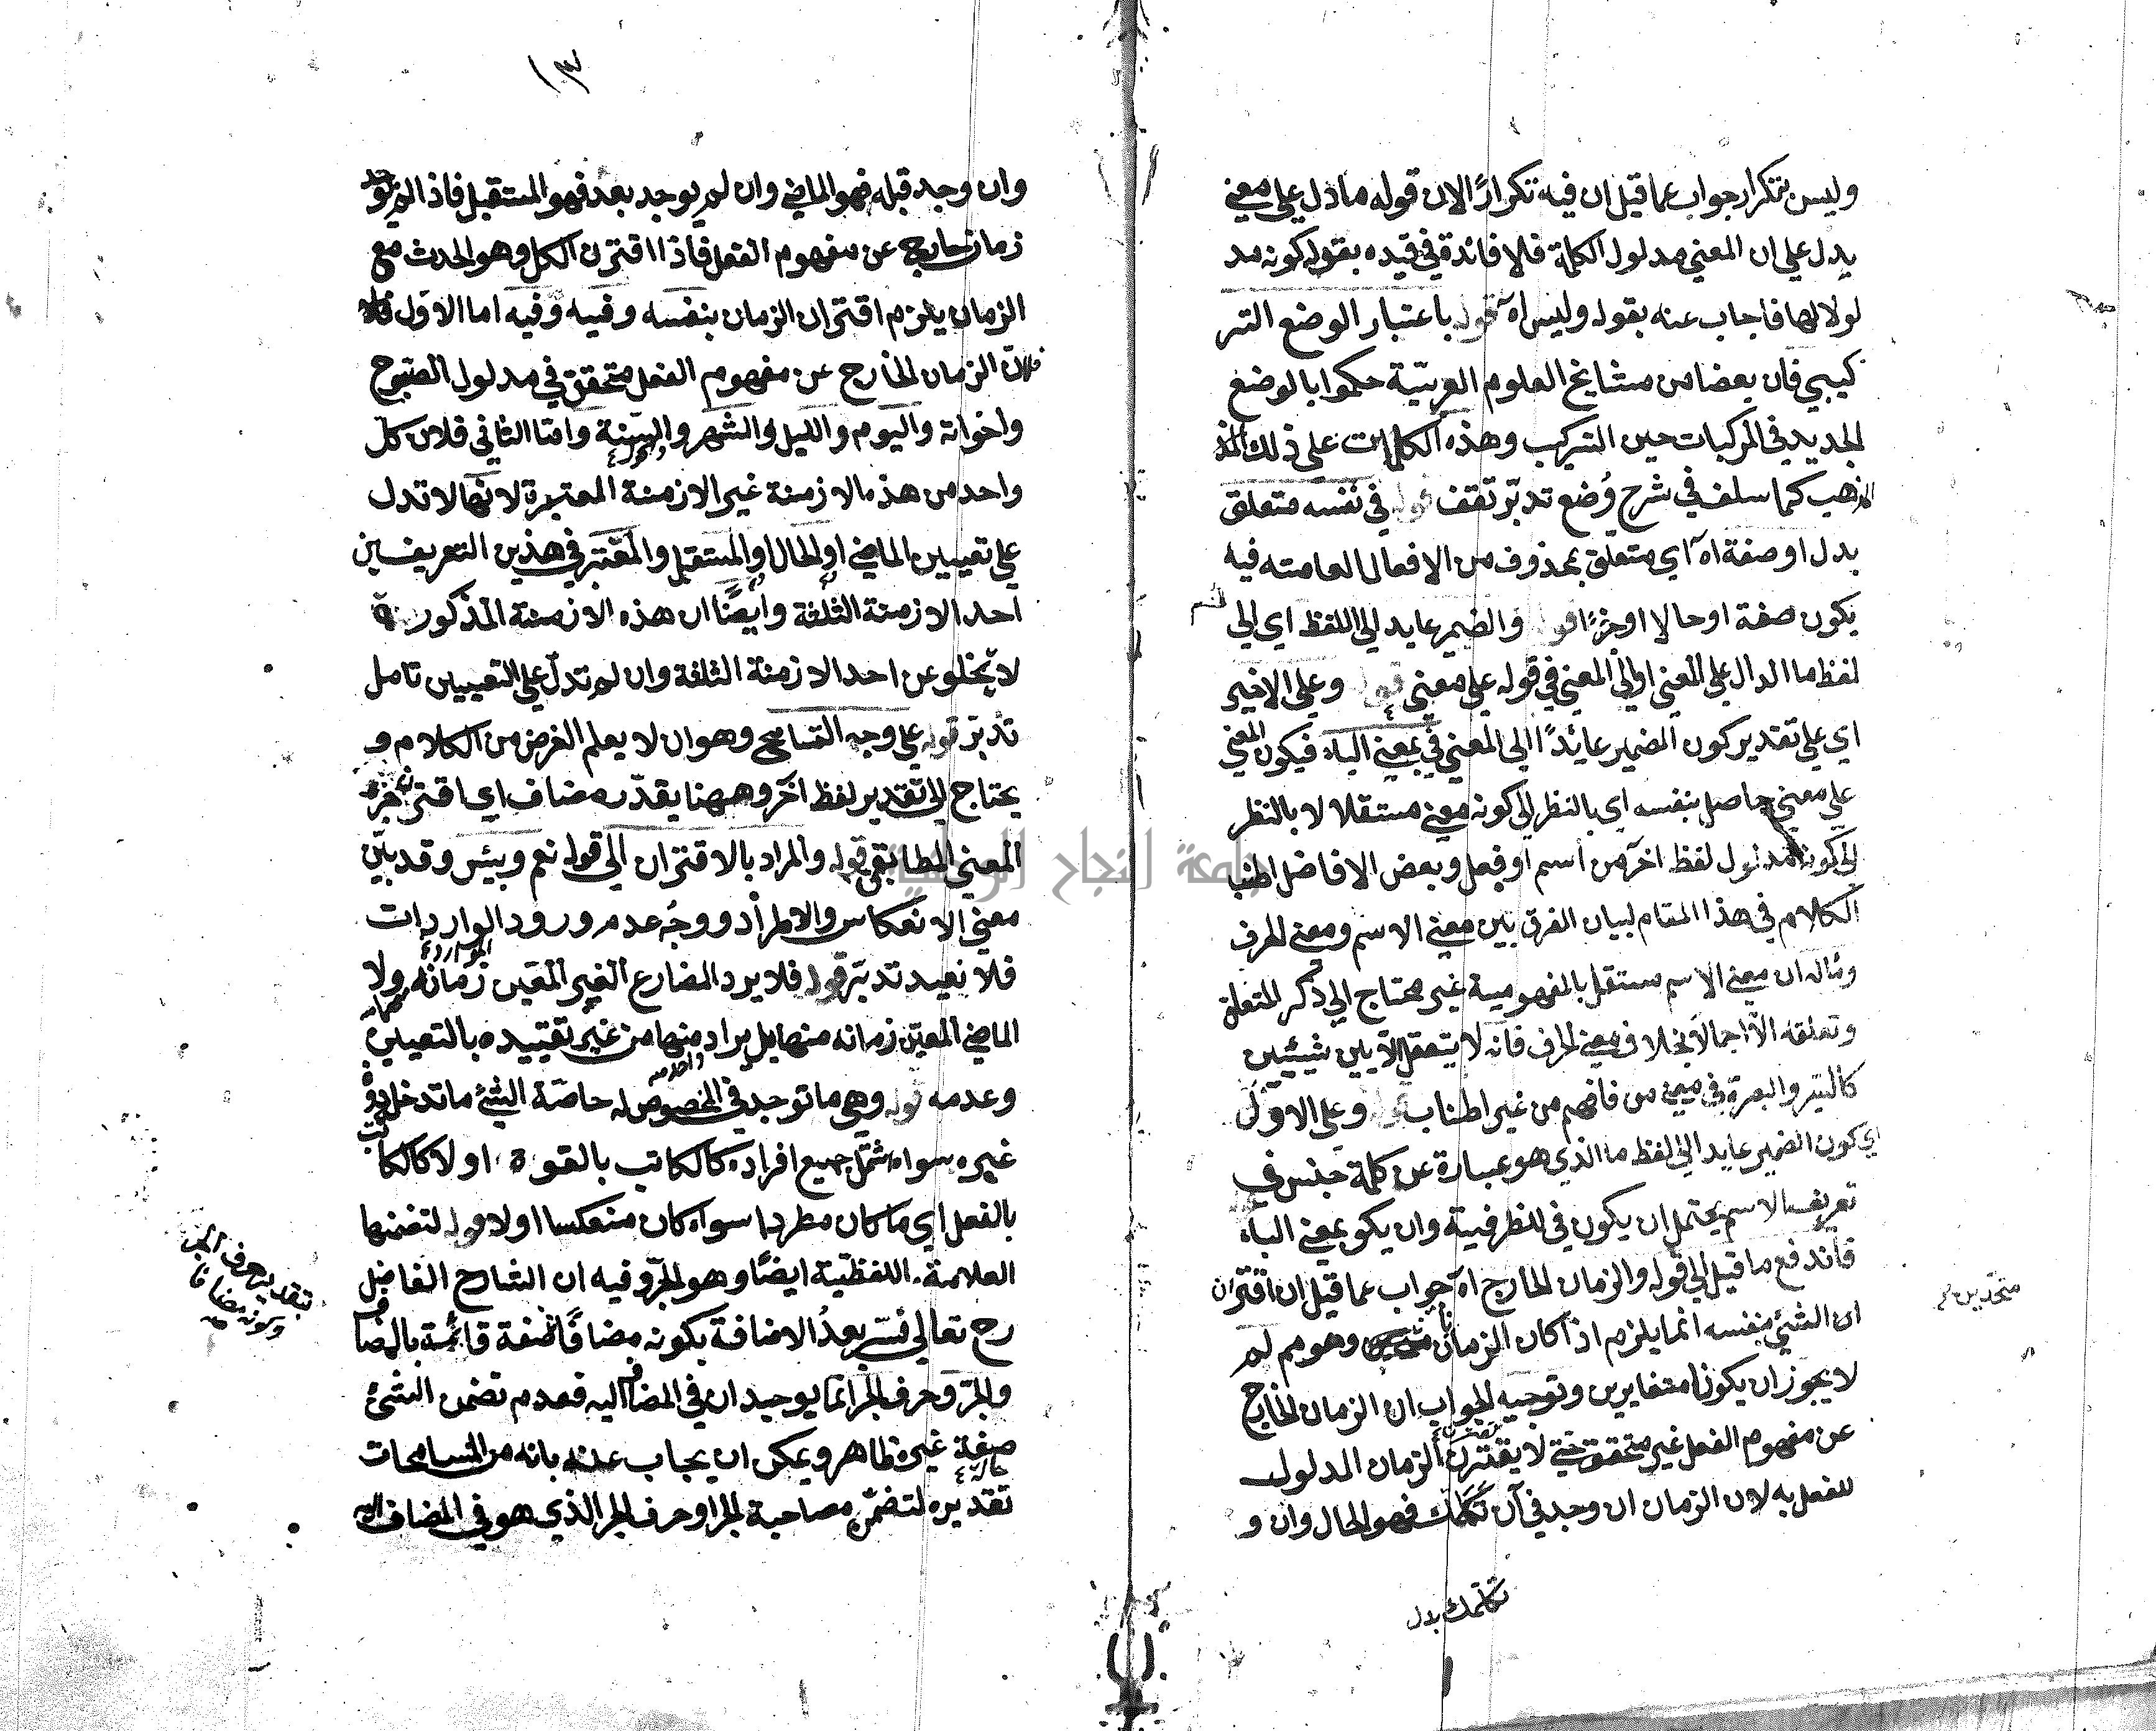 وليس بتكرار جواب عما قيل ان فيه تكرارًا لان قوله ما دل علي معني
يدل علي ان المعني مدلول الكلمة فلا فائدة في قيده بقوله كونه مد
لولا لها فاجاب عنه بقوله وليس اه قوله باعتبار الوضع التر
كيبي فان بعضا من مشايخ العلوم العربيّة حكموا بالوضع
الجديد في المركبات حين التركيب وهذه الكلمات علي ذلك المذ
المذهب كما سلف في شرح وُضع تدبّر تقف قوله في نفسه متعلق
بدل او صفة اه اي متعلق بمحذوف من الافعال العامته فيه
يكون صفة او حالا او جزءًا قوله والضمير عايد الي اللفظ اي الي
لفظ ما الدال علي المعني او الي المعني في قوله علي معني قوله وعلي الاخير
اي علي تقدير كون الضمير عائدًا الي المعني في بمعني الباء فيكون المعني
علي معني حاصل بنفسه اي بالنظر الي كونه معني مستقلا لا بالنظر
الي كونه مدلول لفظ اخر من اسم او فعل وبعض الافاضل اطنبا
الكلام في هذا المقام لبيان الفرق بين معني الاسم ومعني الحرف
وماله ان معني الاسم مستقل بالمفهومية غير محتاج الي ذكر المتعلق
وتعلقه الا اجمالا بخلاف معني الحرف فانه لا يتعقل الا بين شيئين
كالسير والبصرة في معني من فافهم من غير اطناب قوله وعلي الاول
اي كون الضمير عايد الي لفظ ما الذي هو عبارة عن كلمة جنس في
تعريف الاسم يحتمل ان يكون في للظرفيية وان يكو بمعني الباء
فاندفع ما قيل الي قوله والزمان الخارج اه جواب عما قيل ان اقتران
ان الشئ بنفسه انما يلزم اذا كان الزمان وهو مم لم
متحدين
لا يجوز ان يكونا متغايرين وتوجيه الجواب ان الزمان الخارج
عن مفهوم الفعل غير متحقق حتي لا يقترن الزمان المدلول
للفعل به لان الزمان ان وجد في آن تكلمك فهو الحال وان و
تكلمك بدل
١٣
وان وجد قبله فهو الماضي وان لم يوجد بعد فهو المستقبل فاذا لم يوجد
زمان خارج عن مفهوم الفعل فاذا اقترن الكل وهو الحدث مع
الزمان يلزم اقتران الزمان بنفسه وفيه وفيه اما الاول فلا
فلان الزمان الخارج عن مفهوم الفعل متحقق في مدلول الصبوح
واخواته واليوم والليل والشهر والسنة وامّا الثاني فلان كل
واحد من هذه الازمنة غير الازمنة المعتبرة لانها لا تدل
علي تعيين الماضي او الحال او المستقبل والمعتبر في هذين التعريفين
احد الازمنة الثلثة وايضًا ان هذه الازمنة المذكورة
لا يخلو عن احد الازمنة الثلثة وان لم تدل علي التعيين تامل
تدبّر قوله علي وجه التسامح وهو ان لا يعلم الغرض من الكلام و
يحتاج الي تقدير لفظ آخر وههنا يقدّر مضاف اي اقتران جزء
المعني المطابقي قوله والمراد بالاقتران الي قوله نعم وبئس وقد بيّن
معني الانعكاس والاطراد ووجُه عدم ورود الواردات
فلا نعيد تدبّر قوله فلا يرد المضارع الغير المعين زمانه ولا
الماضي المعين زمانه منها بل يراد منها من غير تقييده بالتعيين
وعدمه قوله وهي ما توجد في المخصوص له خاصّة الشئ ما تدخل دون
غيره سواء شمل جميع افراده كالكاتب بالقوة او لا كالكاتب
بالفعل اي ما كان مطردا سواء كان منعكسا اولا قوله لتضمنها
العلامة اللفظيّة ايضًا وهو الجرّ وفيه ان الشارح الفاضل
رح تعالي فسّر بعدُ الاضافة بكونه مضافًا فصفة قائمة بالمضاف
بتقدير حرف الجر
وكونه مضافا
والجرّ وحرف الجر انما يوجدان في المضاف اليه فعدم تضمن الشئ
صفة غيره ظاهر ويمكن ان يجاب عنه بانه من التسامحات
تقديره لتضمّن مصاحبة الجر او حرف الجر الذي هو في المضاف اليه
جامعة النجاح الوطنية